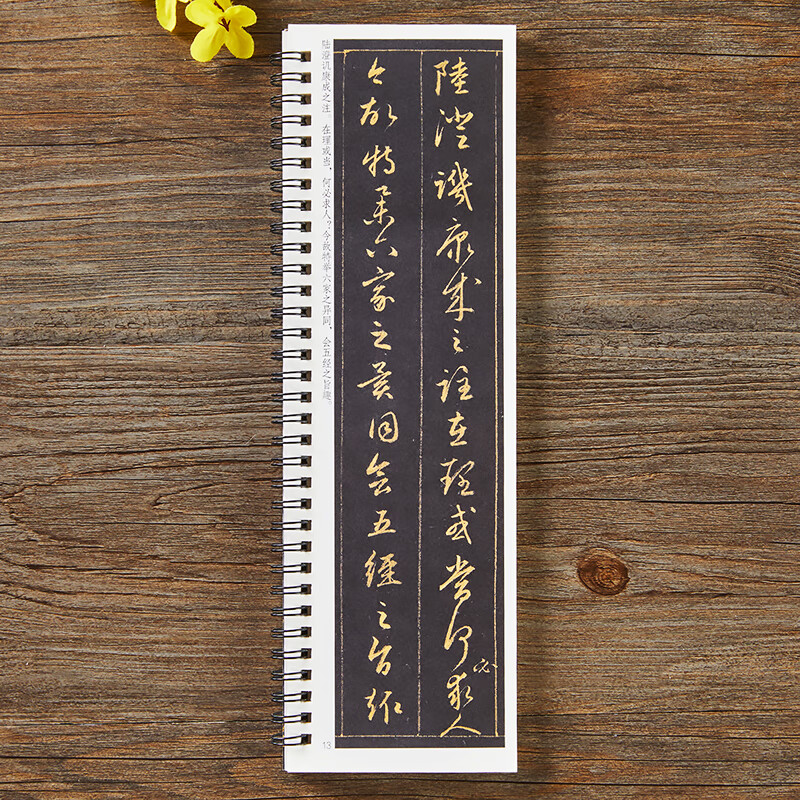 陸澄譏康成之註在理或當何必求人
今故特舉六家之異同會五經之旨趣
陆澄讥康成之注。在理或当,何必求人?今故特举六家之异同,会五经之旨趣。
13